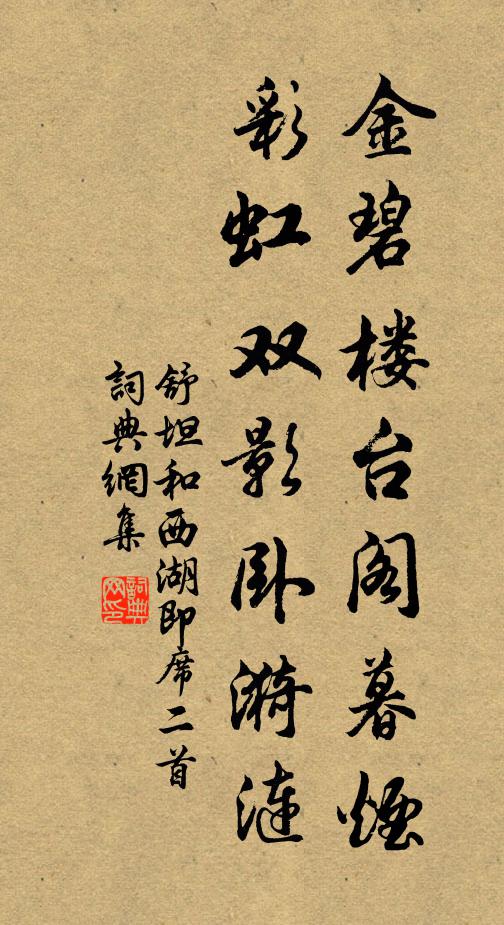 金碧楼台阁暮煙
彩虹双影卧漪涟
舒坦和西湖即席二首
詞典網集
詞典网印